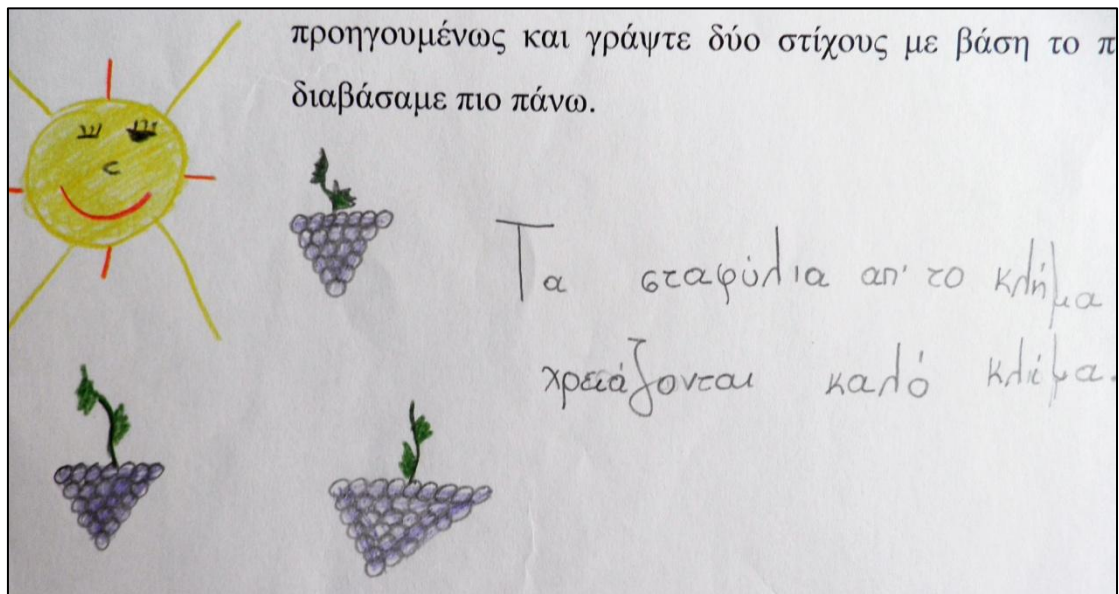 προηγουμένως και γράψτε δύο στίχους με βάση το π
διαβάσαμε πιο πάνω.
Τα σταφύλια απ' το κλήμα
χρειάζονται καλό κλίμα.